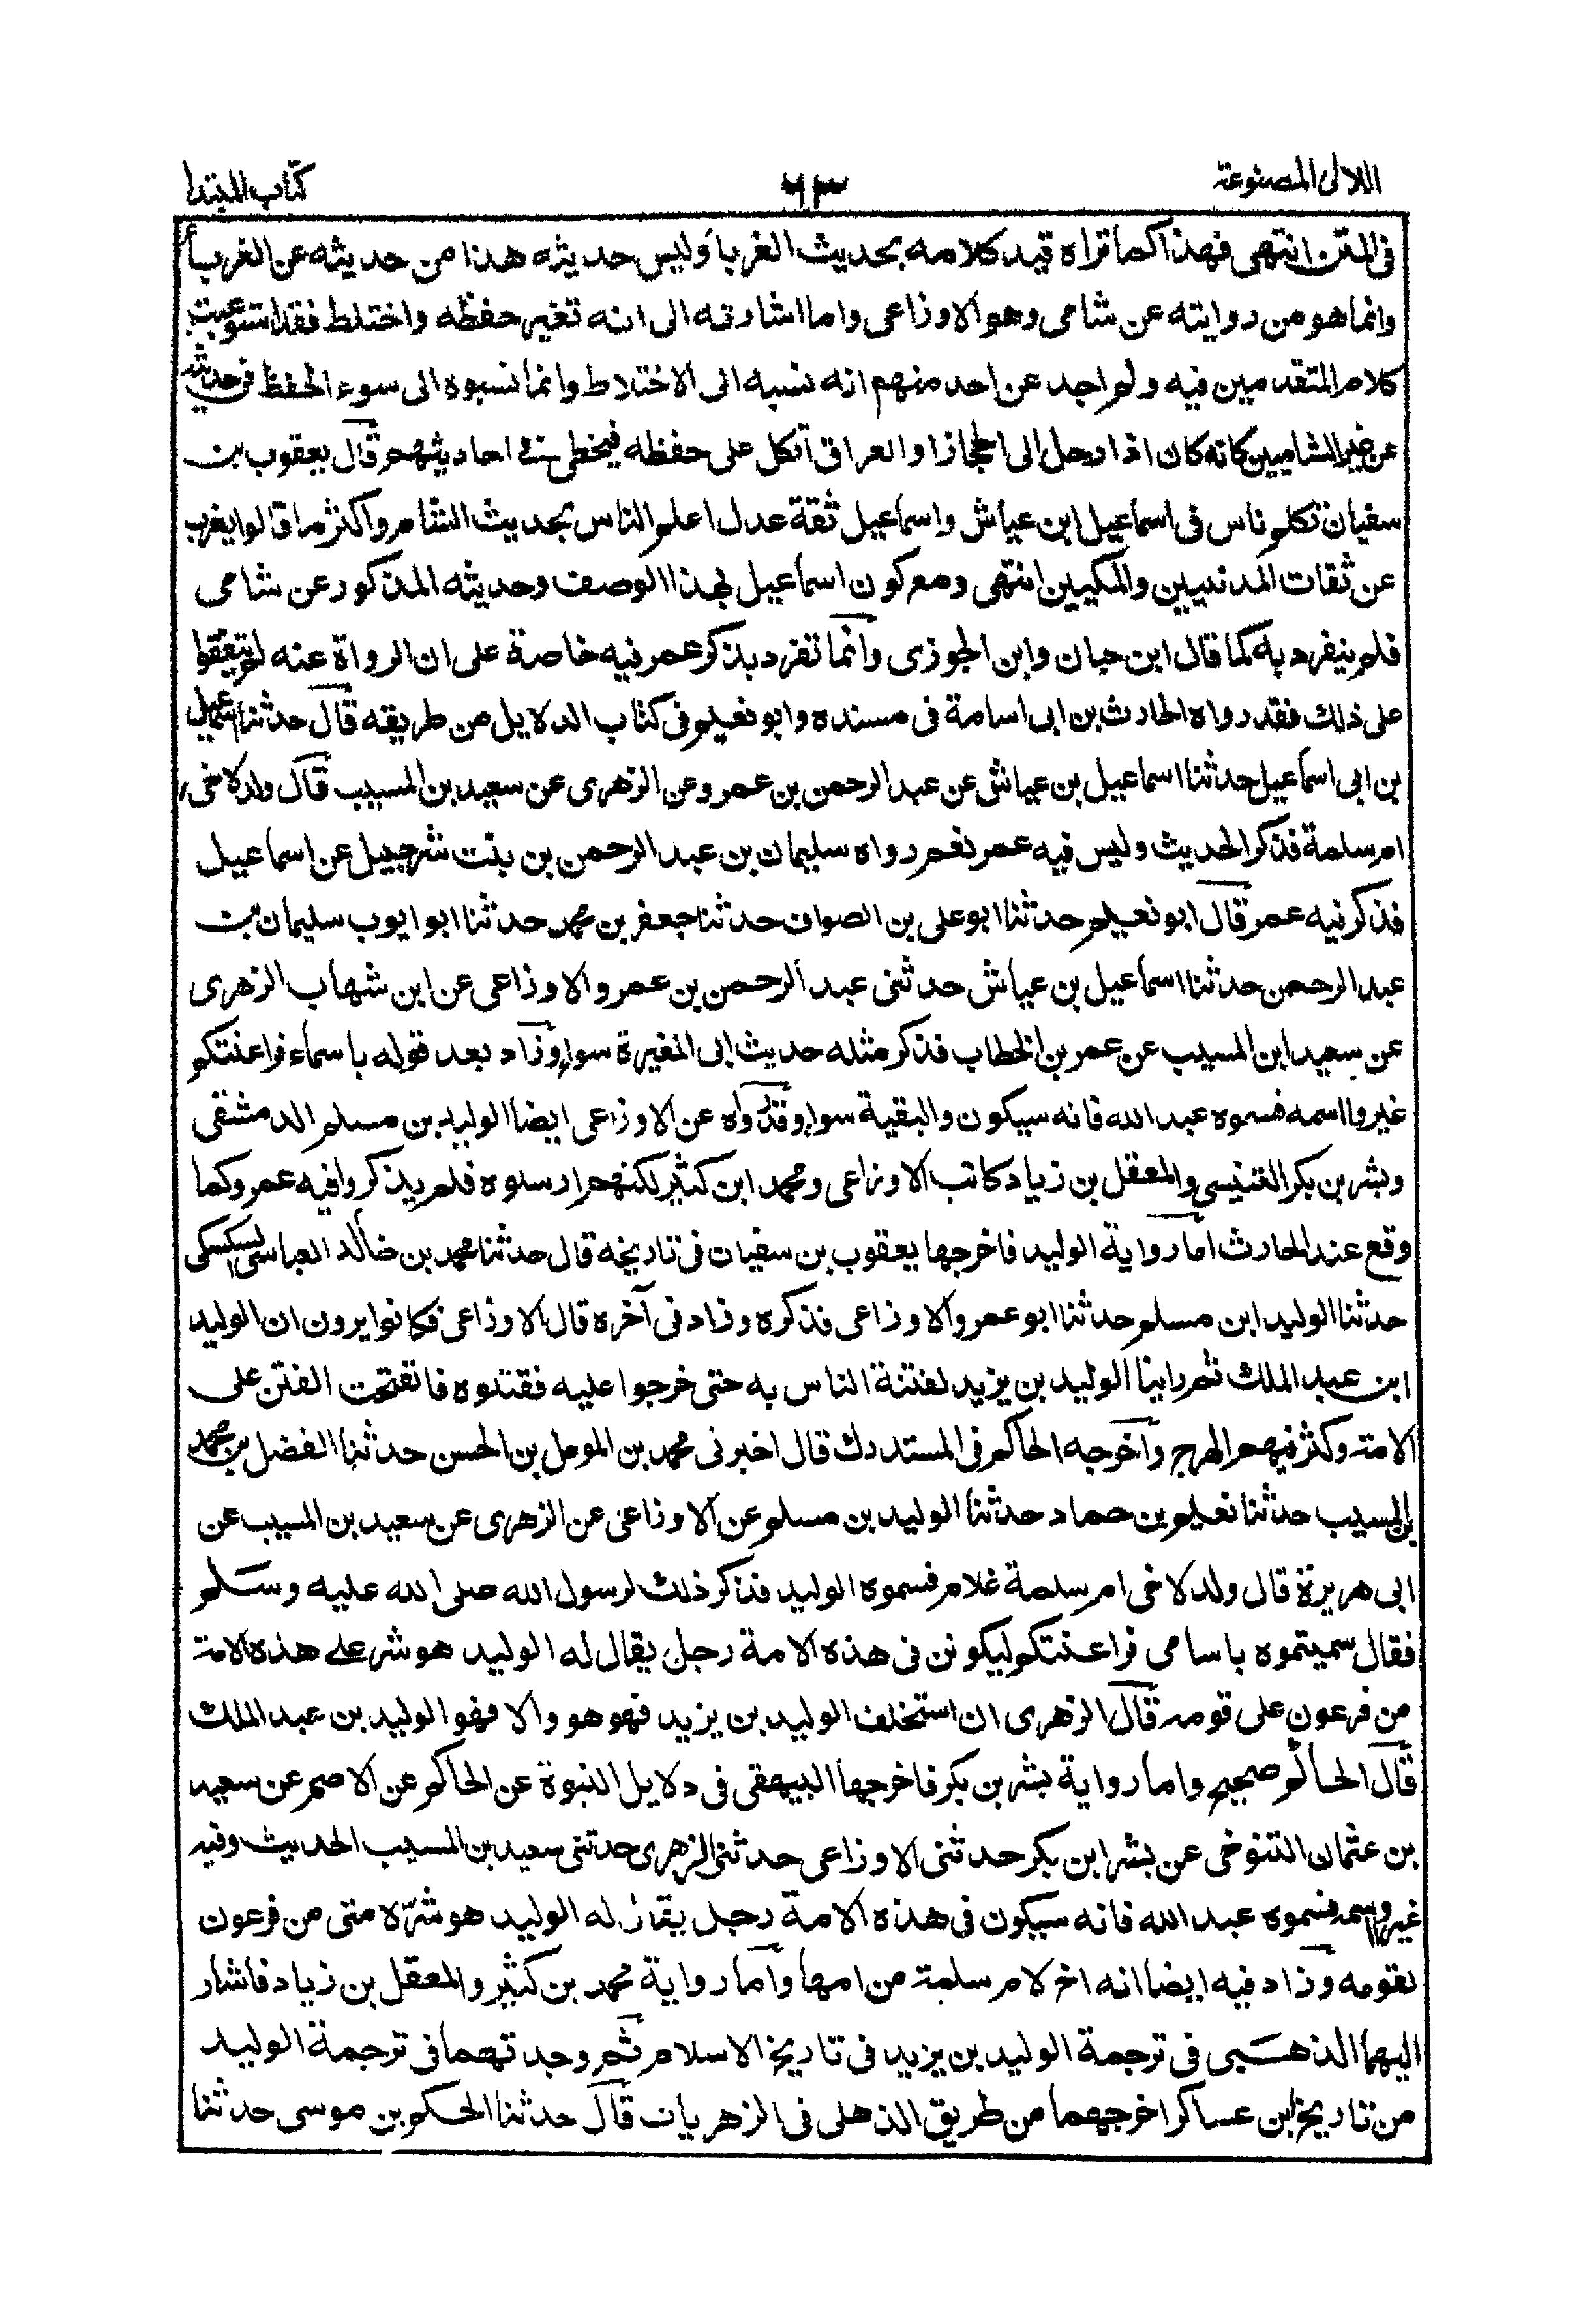 اللالى المصنوعة ٦٣ كتاب المبتدا
فى المتن انتهى فهذا كما تراه قيد كلامه بحديث الغربا وليس حديثه هذا من حديثه عن الغربا
وانما هو من روايته عن شامى وهو الاوزاعى واما اشارته الى انه تغير حفظه واختلط فقد استوعبت
كلام المتقدمين فيه ولم اجد عن احد منهم انه نسبه الى الاختلاط وانما نسبوه الى سوء الحفظ فى حديثه
عن غير الشاميين كانه كان اذا رحل الى الحجاز او العراق اتكل على حفظه فيخطى فى احاديثهم قال يعقوب بن
سفيان تكلم ناس فى اسماعيل ابن عياش واسماعيل ثقة عدل اعلم الناس بحديث الشام واكثر ما قالوا يغرب
عن ثقات المدنيين والمكيين انتهى ومع كون اسماعيل بهذا الوصف وحديثه المذكور عن شامى
فلم ينفرد به كما قال ابن حبان وابن الجوزى وانما تفرد بذكر عمر فيه خاصة على ان الرواة عنه لم يتفقوا
على ذلك فقد رواه الحارث بن ابى اسامة فى مسنده وابو نعيم فى كتاب الدلايل من طريقه قال حدثنا اسماعيل
بن ابى اسماعيل حدثنا اسماعيل بن عياش عن عبد الرحمن بن عمرو عن الزهرى عن سعيد بن المسيب قال ولد لاخى
ام سلمة فذكر الحديث وليس فيه عمر نعم رواه سليمان بن عبد الرحمن بن بنت شرحبيل عن اسماعيل
فذكر فيه عمر قال ابو نعيم حدثنا ابو على بن الصواف حدثنا جعفر بن محمد حدثنا ابو ايوب سليمان بن
عبد الرحمن حدثنا اسماعيل بن عياش حدثنى عبد الرحمن بن عمرو الاوزاعى عن ابن شهاب الزهرى
عن سعيد ابن المسيب عن عمر بن الخطاب فذكر مثله حديث ابى المغيرة سواء وزاد بعد قوله باسماء فراعنتكم
غيروا اسمه فسموه عبد الله فانه سيكون والبقية سواء وقد رواه عن الاوزاعى ايضا الوليد بن مسلم الدمشقى
وبشر بن بكر التنيسى والمعقل بن زياد كاتب الاوزاعى ومحمد ابن كثير لكنهم ارسلوه فلم يذكروا فيه عمر وكما
وقع عند الحارث اما رواية الوليد فاخرجها يعقوب بن سفيان فى تاريخه قال حدثنا محمد بن خالد العباسى السكسكى
حدثنا الوليد ابن مسلم حدثنا ابو عمرو الاوزاعى فذكره وزاد فى آخره قال الاوزاعى فكانوا يرون ان الوليد
ابن عبد الملك ثم راينا الوليد بن يزيد لفتنة الناس به حتى خرجوا عليه فقتلوه فانفتحت الفتن على
الامة وكثر فيهم الهرج واخرجه الحاكم فى المستدرك قال اخبرنى محمد بن المومل بن الحسن حدثنا الفضل بن محمد
بن المسيب حدثنا نعيم بن حماد حدثنا الوليد بن مسلم عن الاوزاعى عن الزهرى عن سعيد بن المسيب عن
ابى هريرة قال ولد لاخى ام سلمة غلام فسموه الوليد فذكر ذلك لرسول الله صلى الله عليه وسلم
فقال سميتموه باسامى فراعنتكم ليكونن فى هذه الامة رجل يقال له الوليد هو شر على هذه الامة
من فرعون على قومه قال الزهرى ان استخلف الوليد بن يزيد فهو هو والا فهو الوليد بن عبد الملك
قال الحاكم صحيح واما رواية بشر بن بكر فاخرجها البيهقى فى دلايل النبوة عن الحاكم عن الاصم عن سعيد
بن عثمان التنوخى عن بشر ابن بكر حدثنى الاوزاعى حدثنى الزهرى حدثنى سعيد بن المسيب الحديث وفيه
غيروا اسمه فسموه عبد الله فانه سيكون فى هذه الامة رجل يقال له الوليد هو شر لامتى من فرعون
لقومه وزاد فيه ايضا انه اخ لام سلمة من امها واما رواية محمد بن كثير والمعقل بن زياد فاشار
اليهما الذهبى فى ترجمة الوليد بن يزيد فى تاريخ الاسلام ثم وجدتهما فى ترجمة الوليد
من تاريخ ابن عساكر اخرجهما من طريق الذهلى فى الزهريات قال حدثنا الحكم بن موسى حدثنا